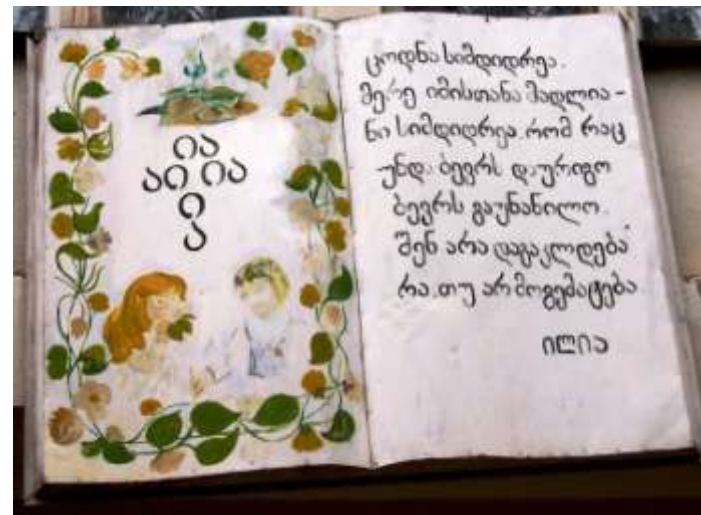 ია
აი ია
ი
ა
ცოდნა სიმდიდრეა.
მერე იმისთანა მადლია-
ნი სიმდიდრეა, რომ რაც
უნდა ბევრს დაურიგო
ბევრს გაუნაწილო.
შენ არა დაგაკლდება
რა, თუ არ მოგემატება
ილია